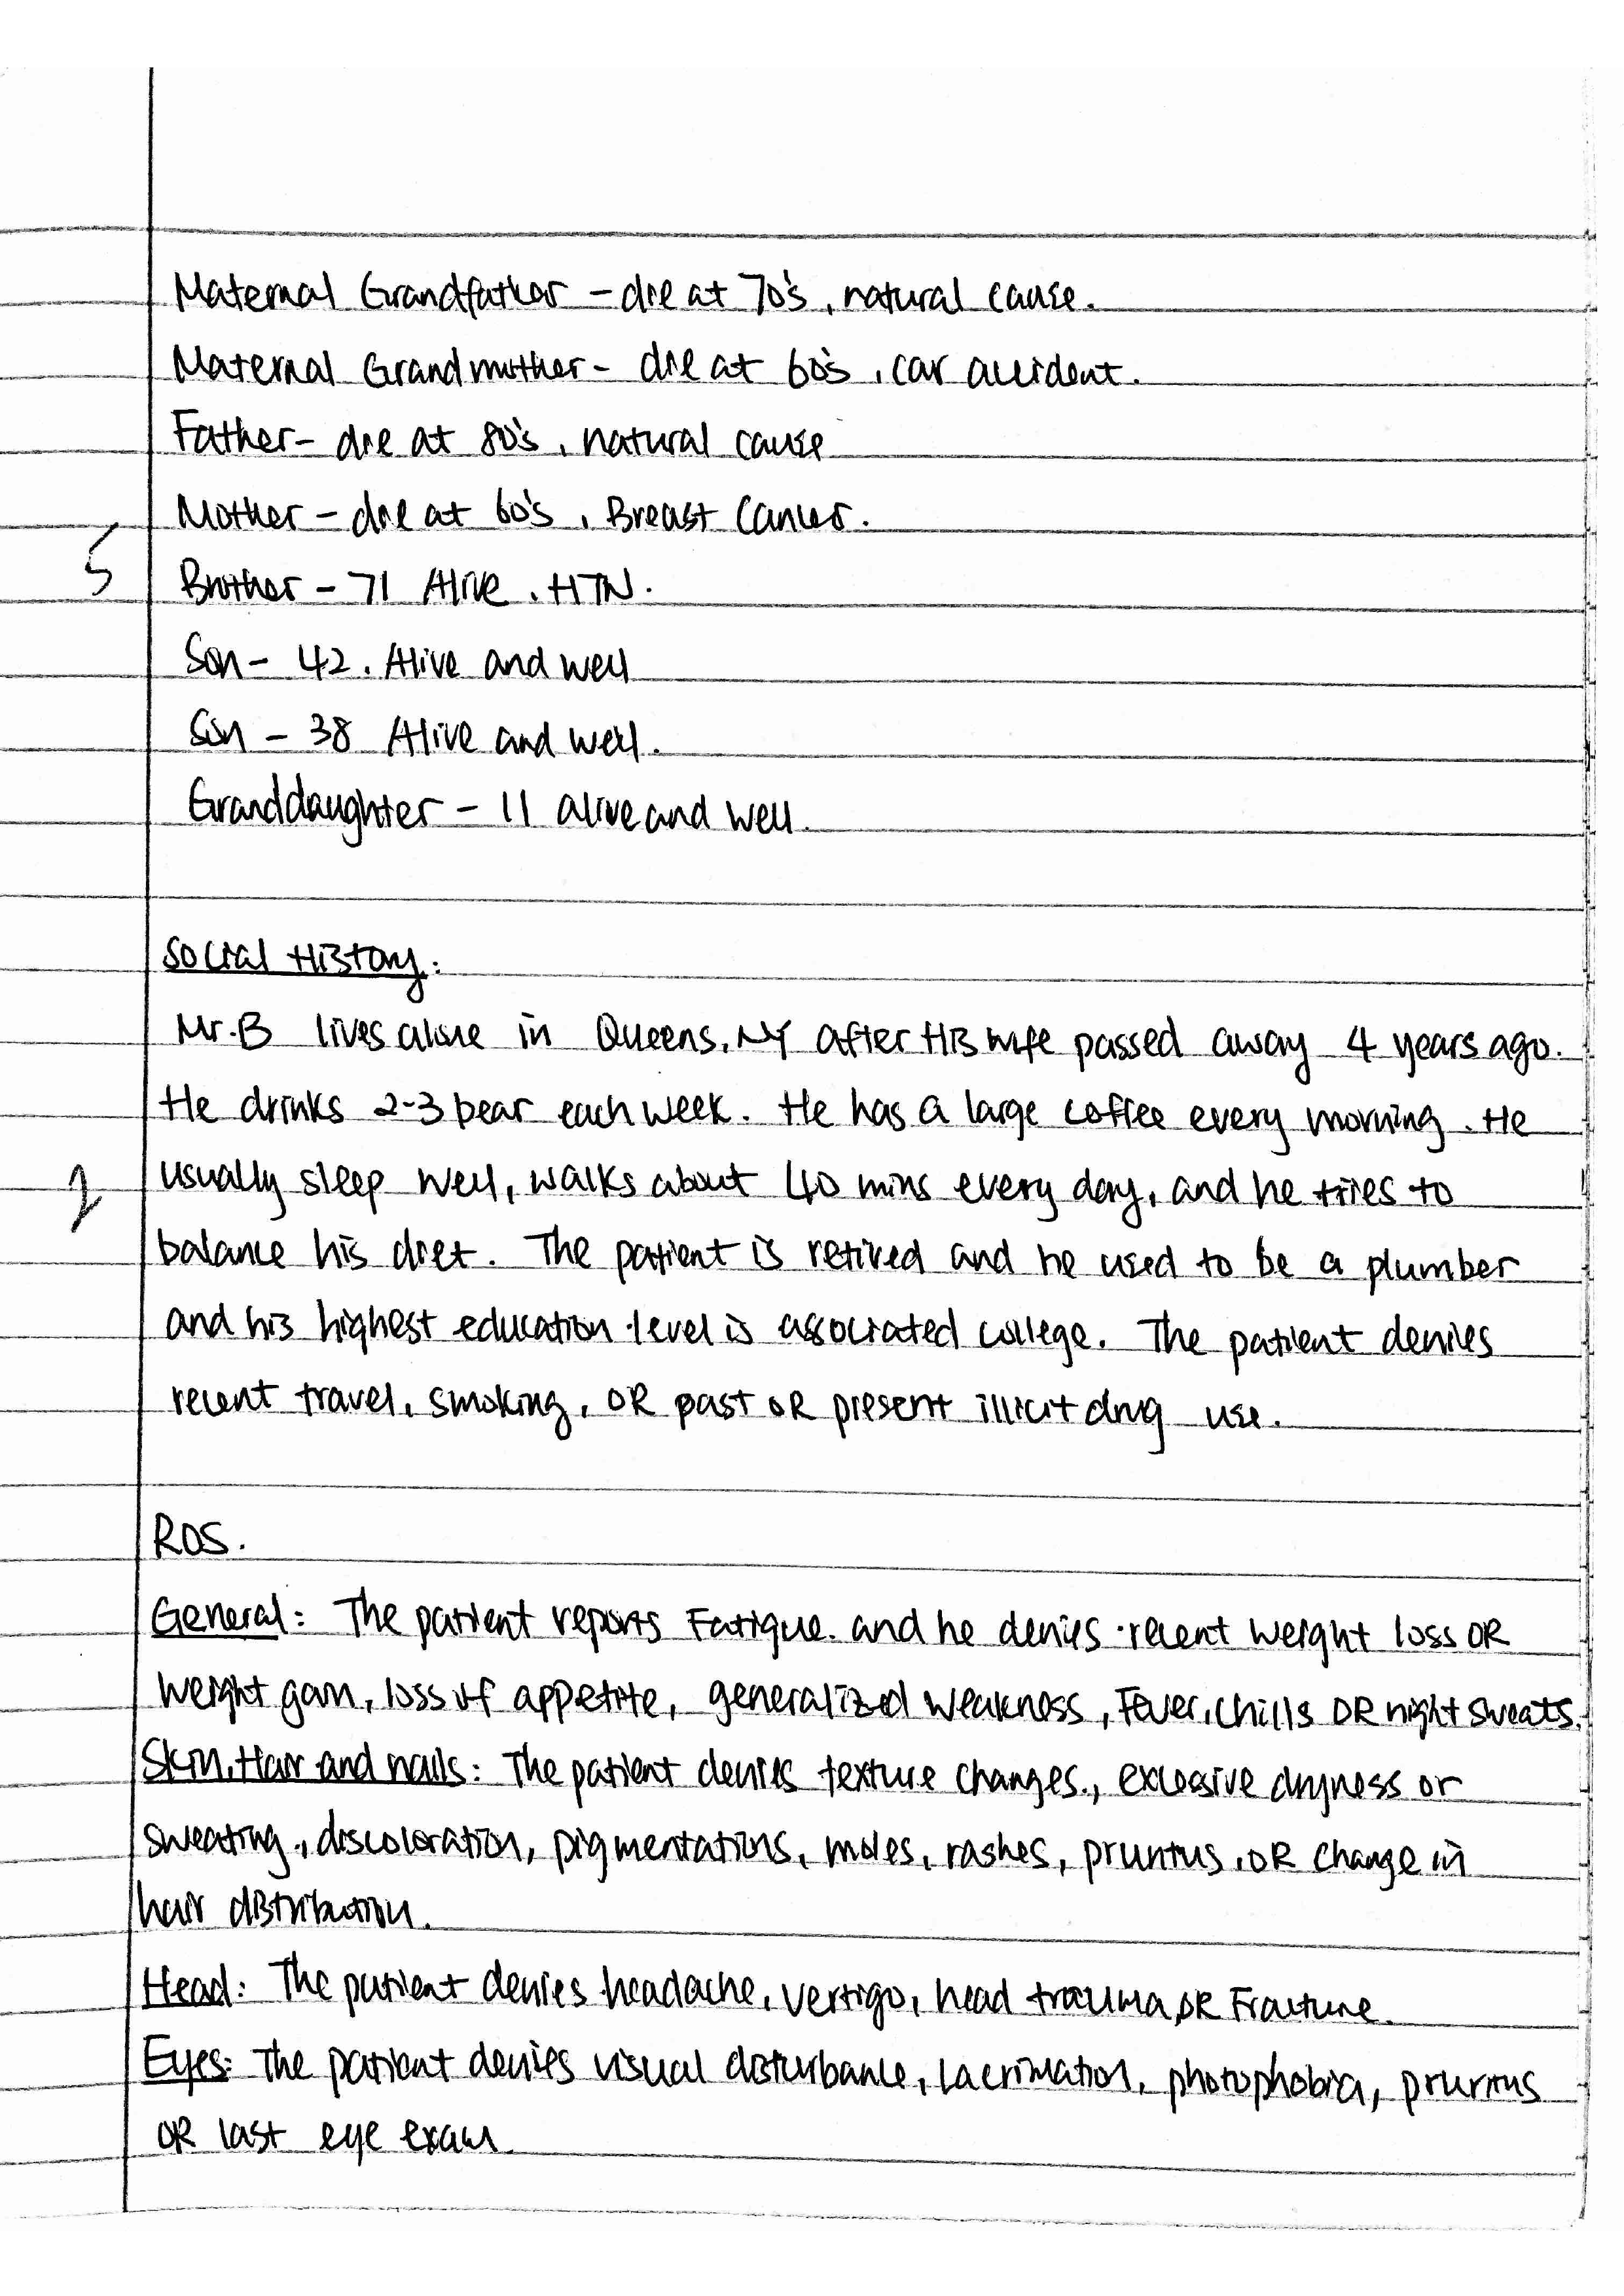 Maternal Grandfather - die at 70's, natural cause.
Maternal Grandmother - die at 60's, car accident.
Father - die at 80's, natural cause
Mother - die at 60's, Breast Cancer.
5
Brother - 71 Alive, HTN.
Son - 42. Alive and well
Son - 38 Alive and well.
Granddaughter - 11 alive and well.
Social History:
Mr.B lives alone in Queens, NY after His wife passed away 4 years ago.
He drinks 2-3 bear each week. He has a large coffee every morning. He
2
usually sleep well, walks about 40 mins every day, and he tries to
balance his diet. The patient is retired and he used to be a plumber
and his highest education level is associated college. The patient denies
recent travel, smoking, OR past OR present illicit drug use.
ROS.
General: The patient reports Fatigue. and he denies recent weight loss OR
weight gain, loss of appetite, generalized weakness, Fever, chills OR night sweats.
Skin, Hair and nails: The patient denies texture changes., excessive dryness or
sweating, discoloration, pigmentations, moles, rashes, pruritus, OR change in
hair distribution.
Head: The patient denies headache, vertigo, head trauma, OR Fracture.
Eyes: The patient denies visual disturbance, Lacrimation, photophobia, pruritus
OR last eye exam.